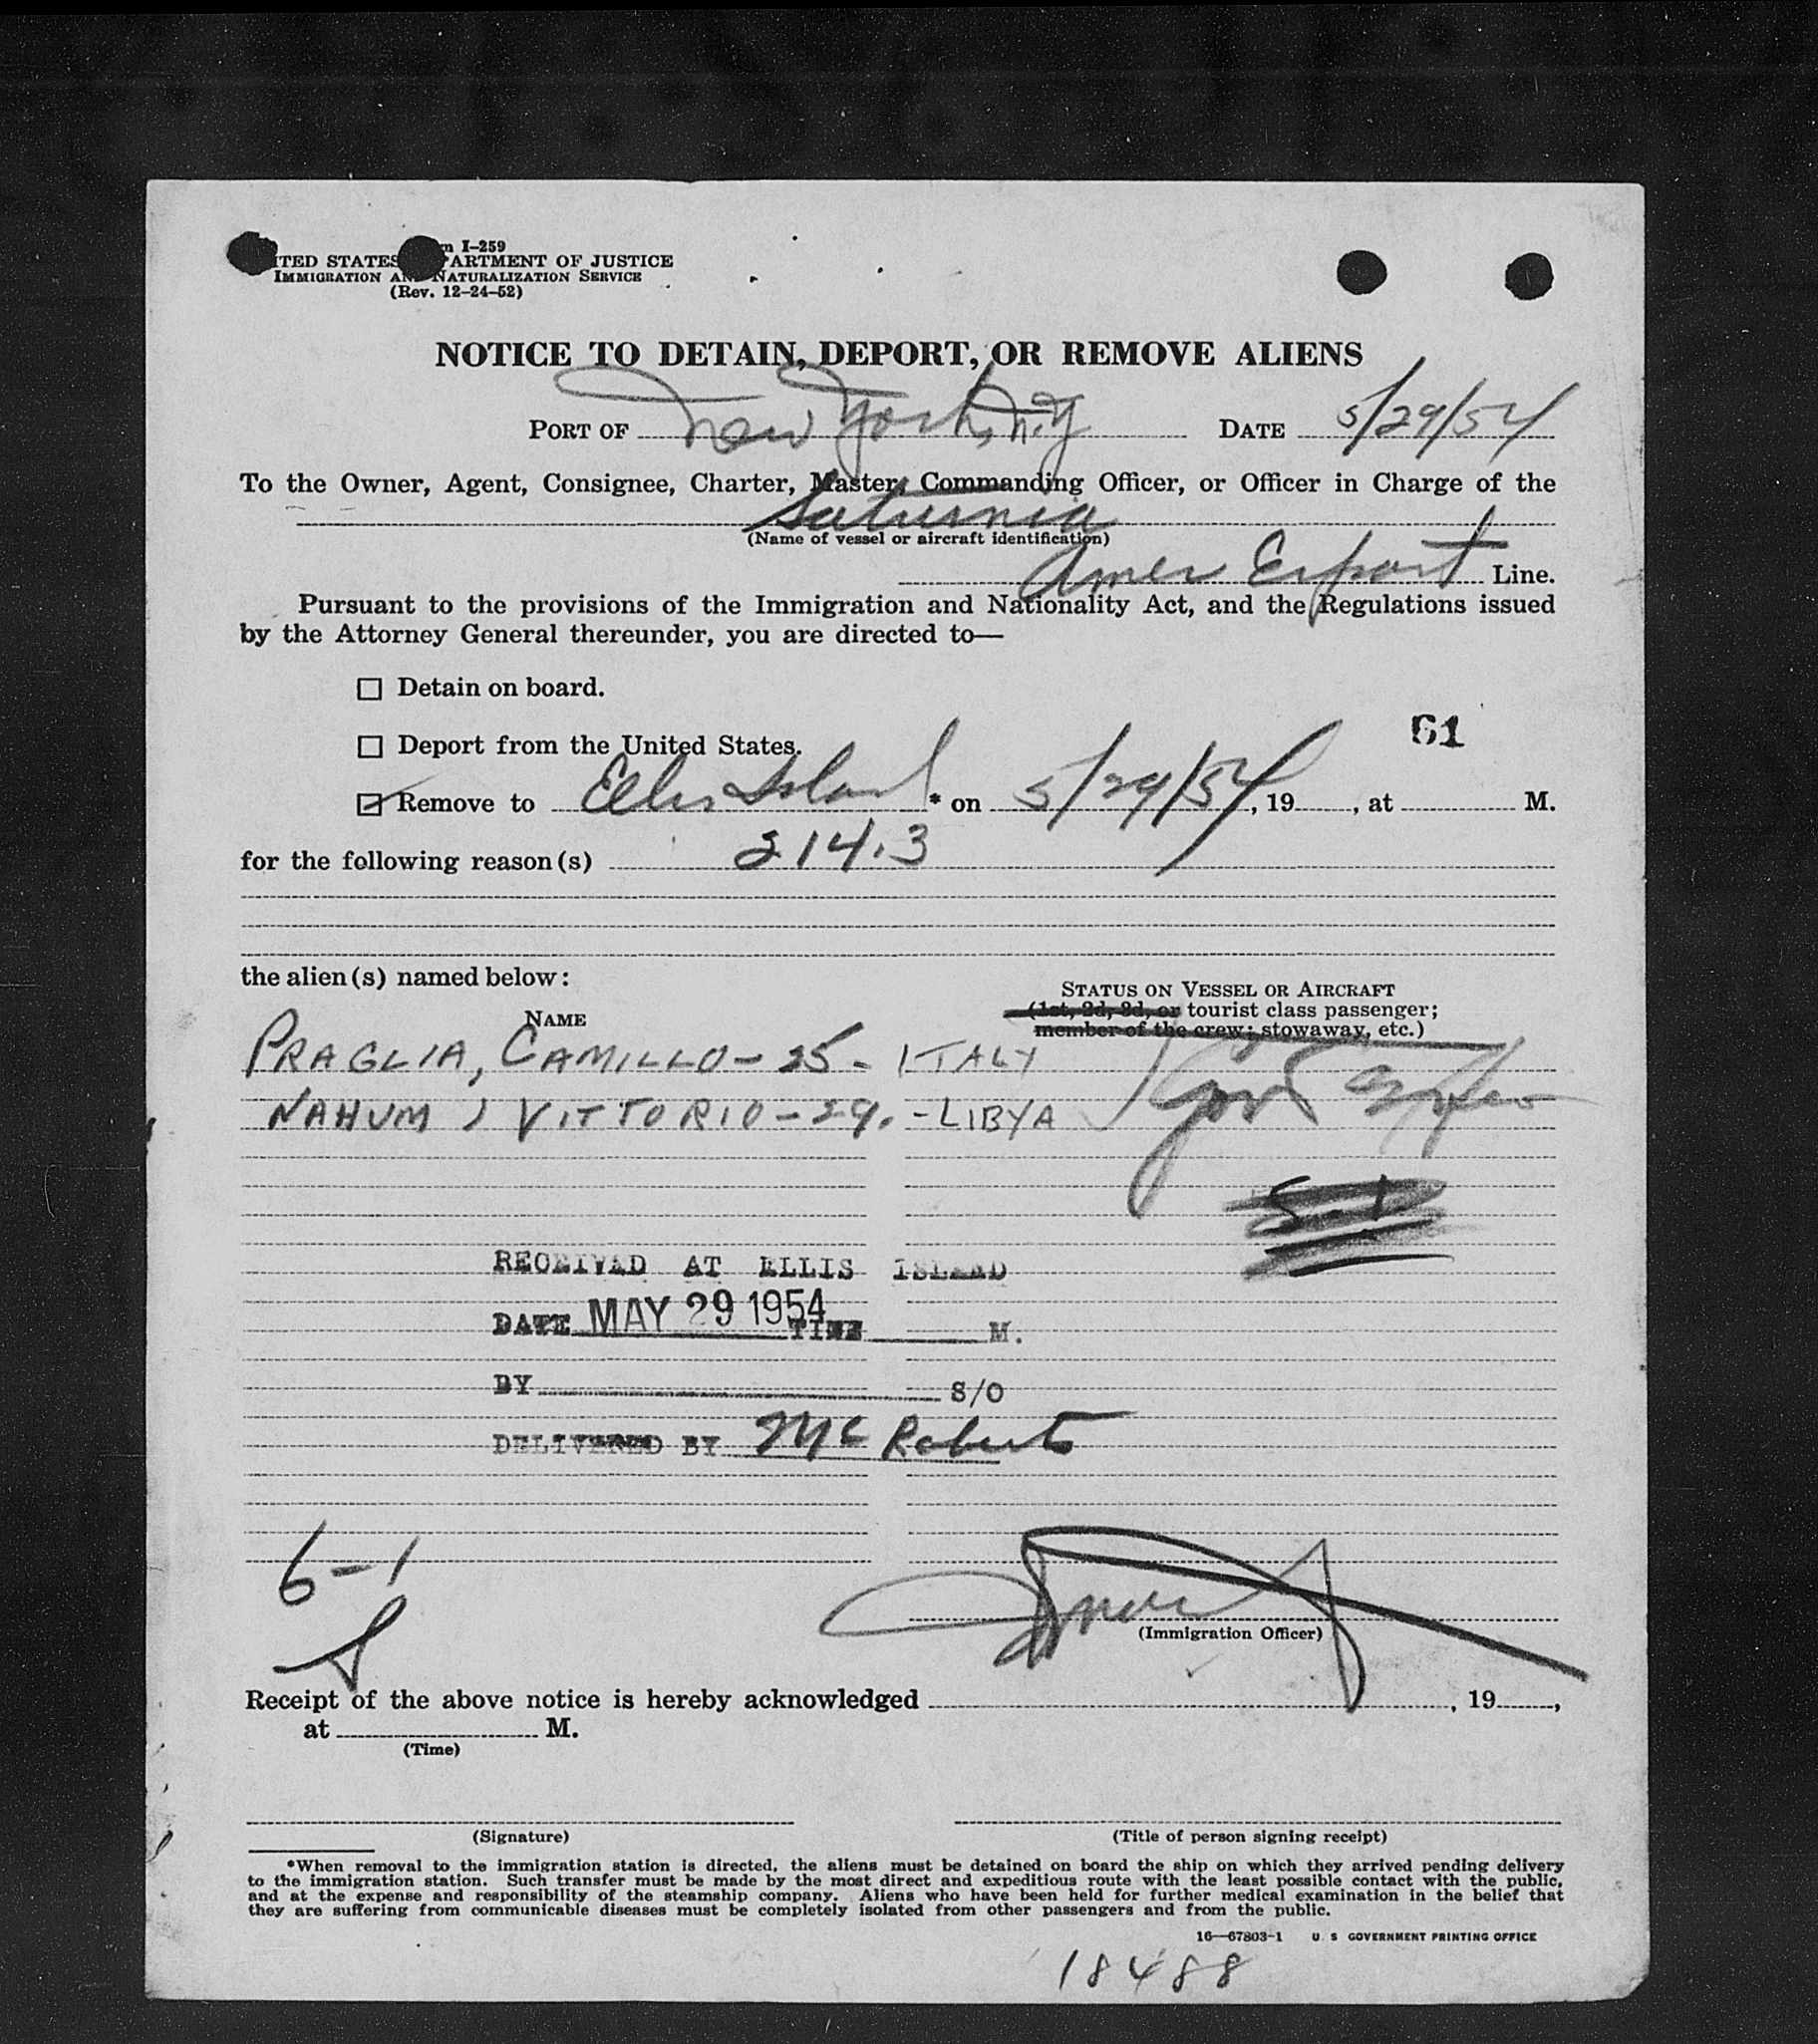 Form I-259
UNITED STATES DEPARTMENT OF JUSTICE
IMMIGRATION AND NATURALIZATION SERVICE
(Rev. 12-24-52)
NOTICE TO DETAIN, DEPORT, OR REMOVE ALIENS
PORT OF New York, N.Y DATE 5/29/54
To the Owner, Agent, Consignee, Charter, Master, Commanding Officer, or Officer in Charge of the
Saturnia
(Name of vessel or aircraft identification)
Amer Export Line.
Pursuant to the provisions of the Immigration and Nationality Act, and the Regulations issued
by the Attorney General thereunder, you are directed to—
Detain on board.
61
Deport from the United States.
Remove to Ellis Island * on 5/29/54, 19, at M.
for the following reason(s) 214.3
the alien(s) named below:
STATUS ON VESSEL OR AIRCRAFT
(1st, 2d, 3d, or tourist class passenger;
member of the crew; stowaway, etc.)
NAME
PRAGLIA, CAMILLO - 25 - ITALY
NAHUM, VITTORIO - 29. - LIBYA
5-1
RECEIVED AT ELLIS ISLAND
DATE MAY 29 1954 TIME M.
BY S/O
DELIVERED BY McRoberts
6-1
(Immigration Officer)
Receipt of the above notice is hereby acknowledged , 19,
at M.
(Time)
(Signature) (Title of person signing receipt)
*When removal to the immigration station is directed, the aliens must be detained on board the ship on which they arrived pending delivery
to the immigration station. Such transfer must be made by the most direct and expeditious route with the least possible contact with the public,
and at the expense and responsibility of the steamship company. Aliens who have been held for further medical examination in the belief that
they are suffering from communicable diseases must be completely isolated from other passengers and from the public.
16—67803-1 U. S. GOVERNMENT PRINTING OFFICE
18488